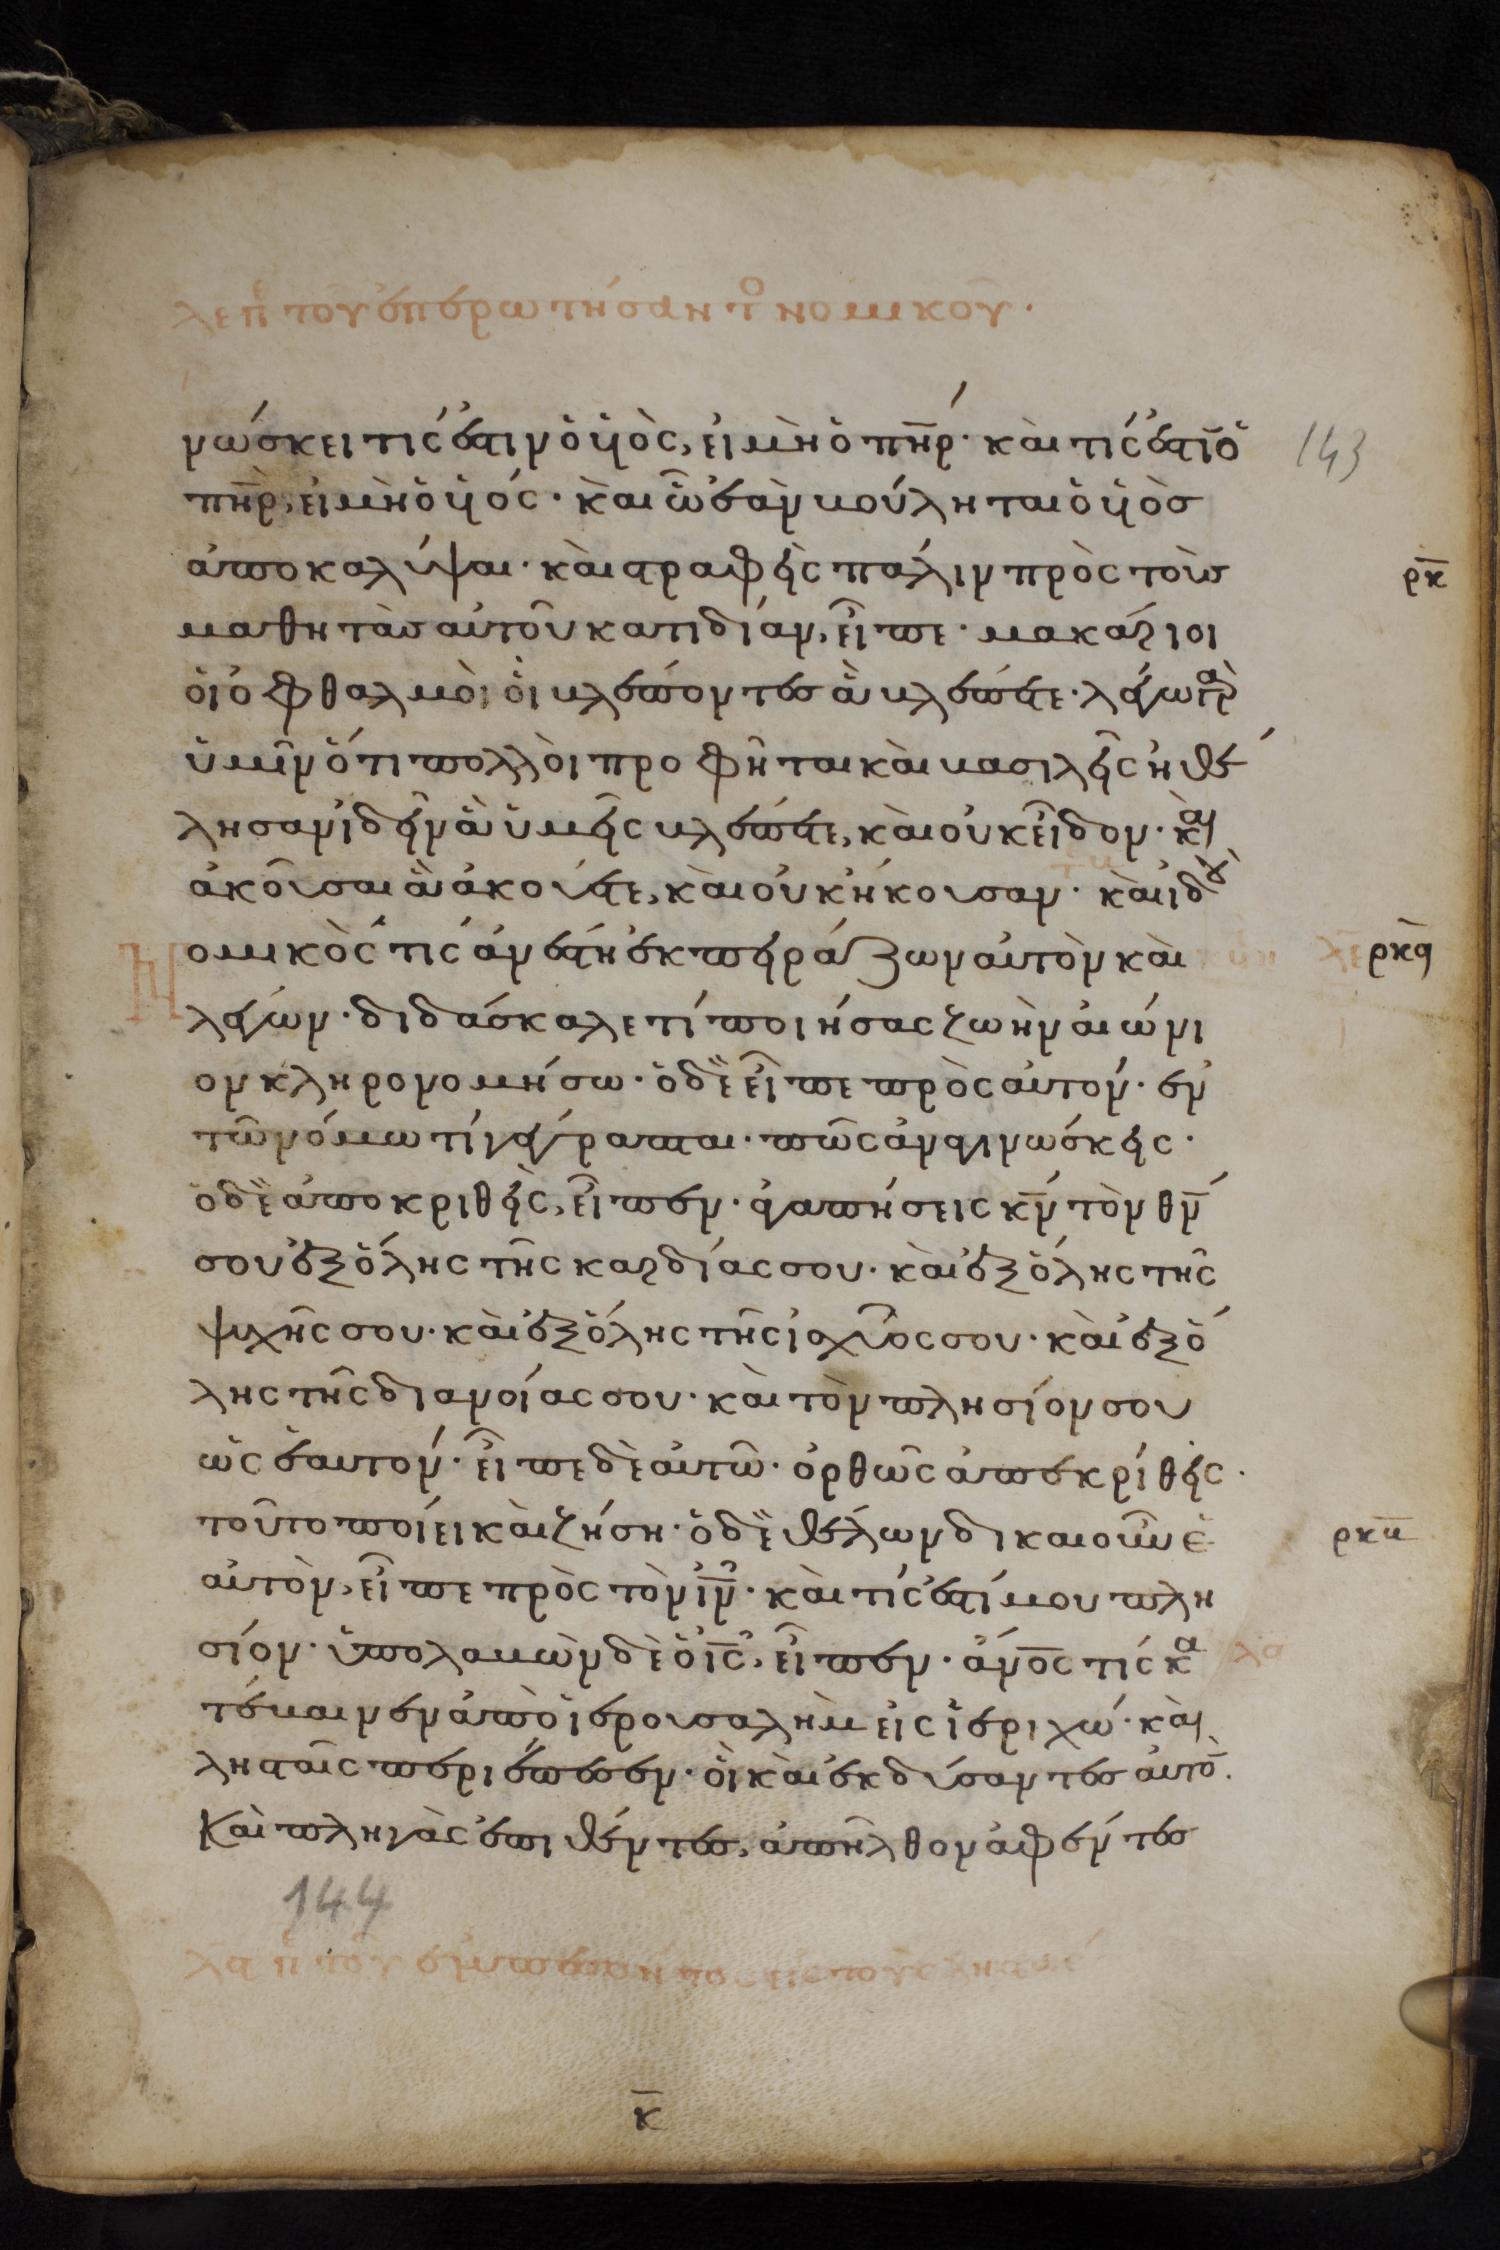 λε πε τοῦ ἐπερωτήσαντο νομικοῦ·
νώσκει τίς ἐστιν ὁ ὑιὸς, εἰ μὴ ὁ πη̅ρ· καὶ τίς ἐστιν ὁ 143
πη̅ρ, εἰ μὴ ὁ ὑιός· καὶ ὧ ἐὰν βούληται ὁ ὑιὸσ
ἀποκαλύψαι· καὶ στραφεὶς πάλιν πρὸς τοὺσ ρκ̅
μαθητὰσ αὐτοῦ κατιδίαν, εἶπε· μακάριοι
ὁι ὀφθαλμοὶ ὁι βλέποντεσ ἃ βλέπετε· λέγω γὰρ
ὑμῖν ὅτι πολλοὶ προφῆται καὶ βασιλεῖς ἠθέ
λησαν ἰδεῖν ἃ ὑμεῖς βλέπετε, καὶ οὐκ εἶδον· καὶ
ἀκοῦσαι ἃ ἀκούετε, καὶ οὐκ ἤκουσαν· καὶ ἰδοὺ
Νομικὸς τίς ἀνέστη ἐκπειράζων αὐτὸν καὶ λε ρκα
λέγων· διδάσκαλε τί ποιήσας ζωὴν αἰώνι
ον κληρονομήσω· ὁ δὲ εἶπε πρὸς αὐτόν· ἐν
τῶ νόμω τί γέγραπται· πῶς ἀναγινώσκεις·
ὁ δὲ ἀποκριθεὶς, εἶπεν· ἀγαπήσεις κ̅ν τὸν θ̅ν
σου ἐξ ὅλης τῆς καρδίας σου· καὶ ἐξ ὅλης τῆς
ψυχῆς σου· καὶ ἐξ ὅλης τῆς ἰσχύος σου· καὶ ἐξ ὅ
λης τῆς διανοίας σου· καὶ τὸν πλησίον σου
ὡς ἑαυτόν· εἶπε δὲ αὐτῶ· ὀρθῶς ἀπεκρίθης·
τοῦτο ποίει καὶ ζήση· ὁ δὲ θέλων δικαιοῦν ἑ ρκβ̅
αὐτὸν, εἶπε πρὸς τὸν ι̅ν· καὶ τίς ἐστί μου πλη
σίον· ὑπολαβὼν δὲ ὁ ι̅ς, εἶπεν· ἄν̅ος τίς κα λσ
τέβαινεν ἀπὸ ἱερουσαλὴμ εἰς ἱεριχώ· καὶ
λησταῖς περιέπεσεν· ὁὶ καὶ ἐκδύσαντεσ αὐτὸ̅·
Καὶ πληγὰς ἐπιθέντεσ, ἀπῆλθον ἀφέντεσ
144
λσ πε τοῦ ἐμπεσόντος εἰς τοὺς ληστάς
κ̅